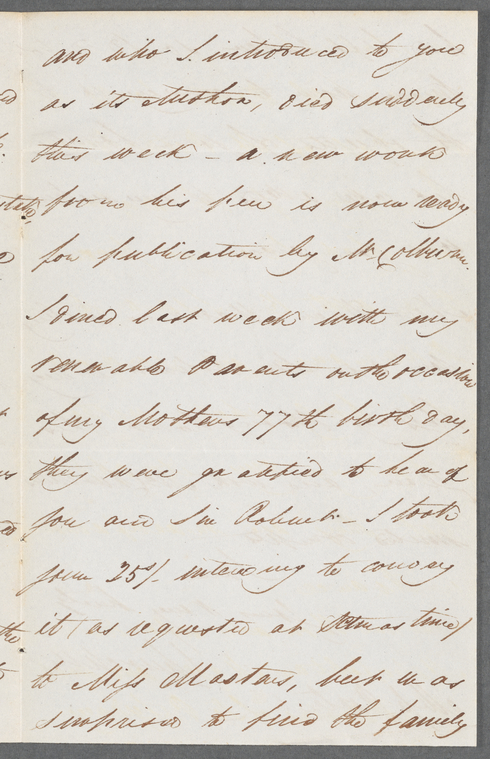 and who I introduced to you
as its Author, died suddenly
this week - a new work
from his pen is now ready
for publication by Mr. Colburn.
I dined last week with my
venerable Parents on the occasion
of my Mothers 77th birth day,
they were gratified to hear of
you and Sir Robert - I took
your 25/- intending to convey
it (as requested at Xtmas time)
to Miss Masters, but was
surprised to find the family